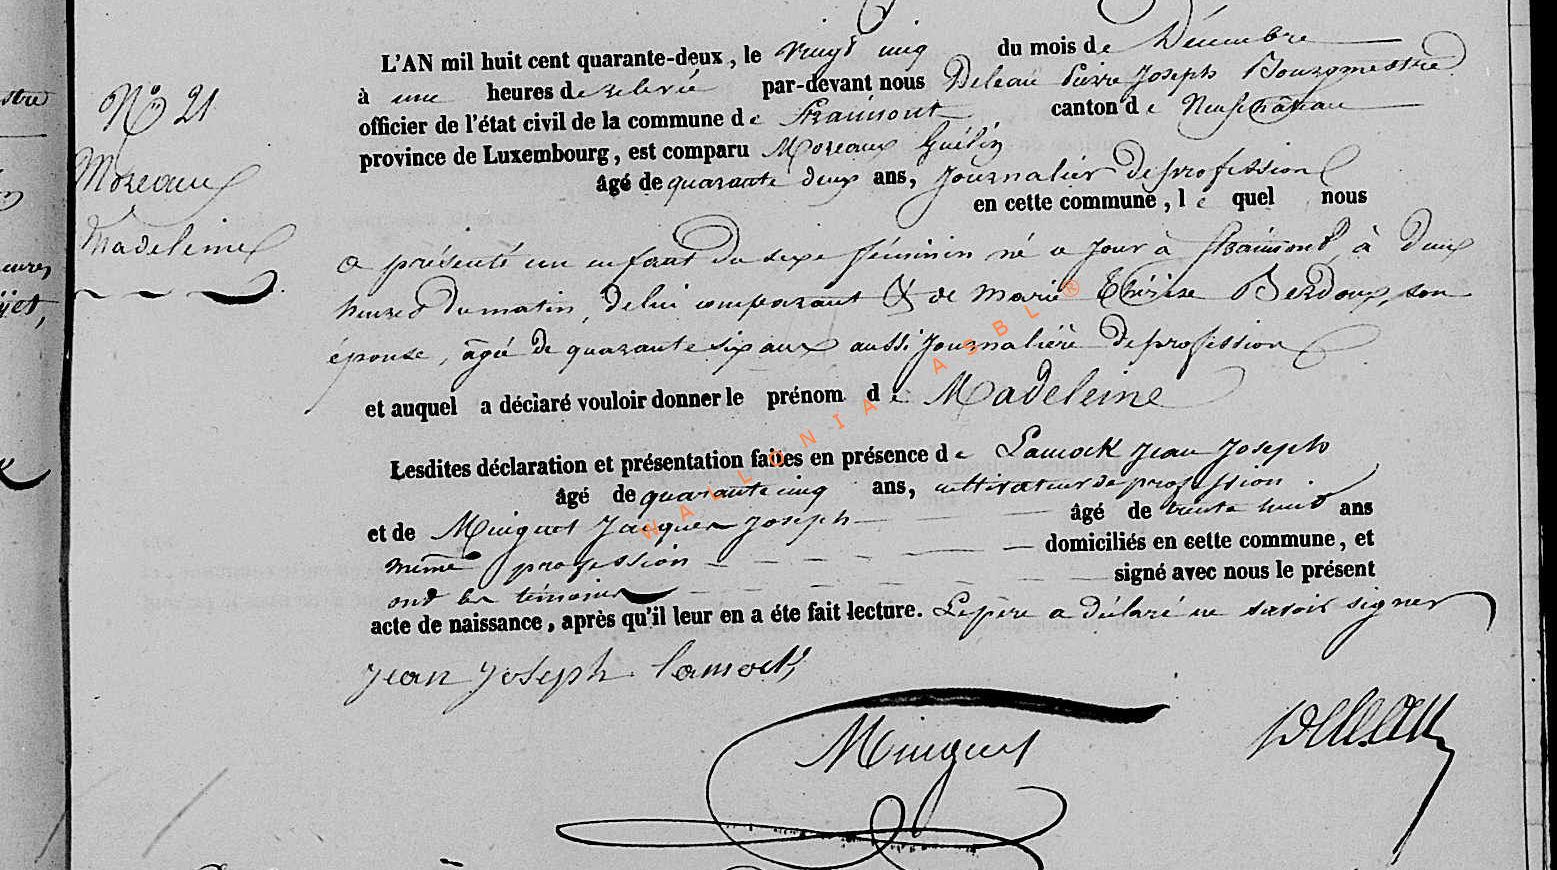 L'AN mil huit cent quarante-deux, le vingt cinq du mois de Décembre
à une heures de relevée par-devant nous Deleau Pierre Joseph Bourgmestre
officier de l'état civil de la commune de Straimont canton de Neufchâteau
province de Luxembourg, est comparu Moreaux Guélin
âgé de quarante deux ans, Journalier de profession
en cette commune, le quel nous
a présenté un enfant du sexe féminin né ce jour à Straimont, à deux
heures du matin, de lui comparant & de Marie Thérèse Berdoux, son
épouse, âgée de quarante six ans aussi Journalière de profession
et auquel a déclaré vouloir donner le prénom de Madeleine
Lesdites déclaration et présentation faites en présence de Lamock Jean Joseph
âgé de quarante cinq ans, cultivateur de profession.
et de Minguet Jacques Joseph âgé de trente huit ans
même profession domiciliés en cette commune, et
ont les témoins signé avec nous le présent
acte de naissance, après qu'il leur en a éte fait lecture. Le père a déclaré ne savoir signer
Jean Joseph Lamock
Minguet
Deleau
N° 21
Moreaux
Madeleine
WALLONIA ASBL ®